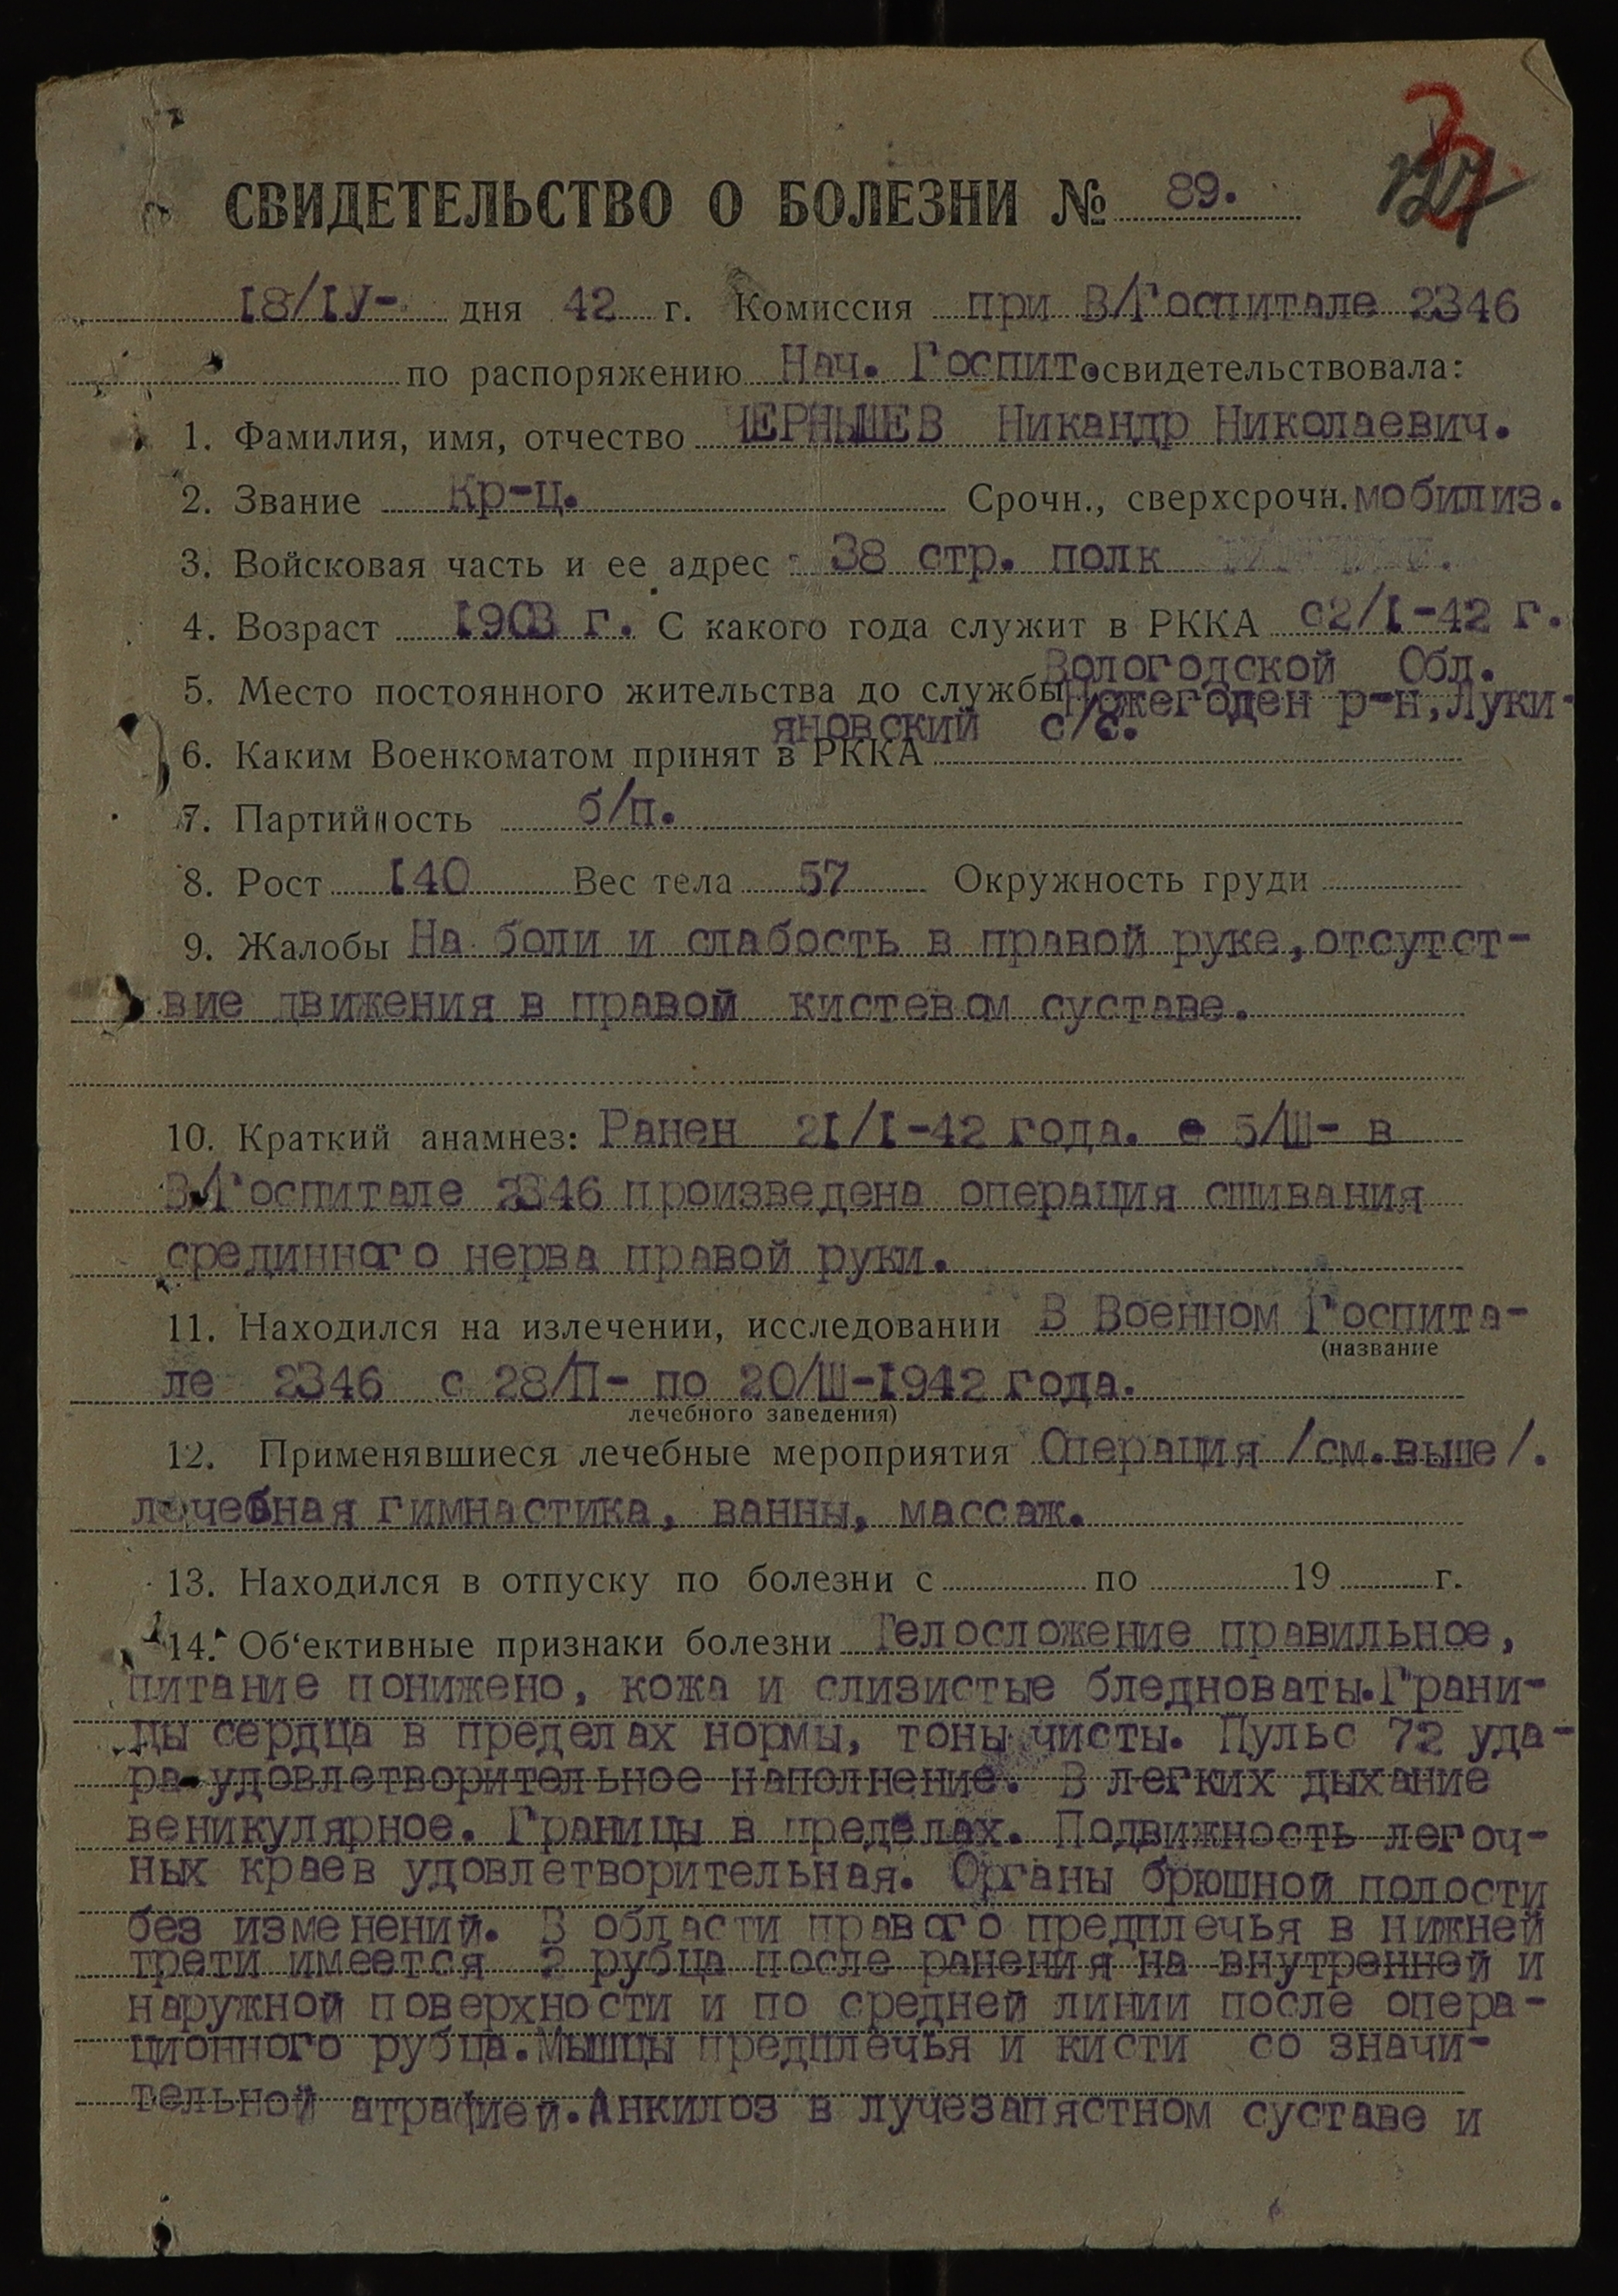 3
127
СВИДЕТЕЛЬСТВО О БОЛЕЗНИ № 89.
I8/IУ- дня 42 г. Комиссия при В/Госпитале 2346
по распоряжению Нач. Госпит. освидетельствовала:
1. Фамилия, имя, отчество ЧЕРНЫШЕВ Никандр Николаевич.
2. Звание Кр-ц. Срочн., сверхсрочн. мобилиз.
3. Войсковая часть и ее адрес 38 стр. полк
4. Возраст I903 г. С какого года служит в РККА с2/I-42 г.
Вологодской Обл.
5. Место постоянного жительства до службы р-н, Луки-
яновский с/с.
6. Каким Военкоматом принят в РККА
7. Партийность б/п.
8. Рост I40 Вес тела 57 Окружность груди
9. Жалобы На боли и слабость в правой руке, отсутст-
вие движения в правой кистевом суставе.
10. Краткий анамнез: Ранен 2I/I-42 года. е 5/Ш- в
В/Госпитале 2346 произведена операция сшивания
срединного нерва правой руки.
11. Находился на излечении, исследовании В Военном Госпита-
(название
ле 2346 с 28/П- по 20/Ш-I942 года.
лечебного заведения)
12. Применявшиеся лечебные мероприятия Операция /см.выше/.
лечебная гимнастика, ванны, массаж.
13. Находился в отпуску по болезни с по 19 г.
14. Об'ективные признаки болезни Телосложение правильное,
питание понижено, кожа и слизистые бледноваты. Грани-
цы сердца в пределах нормы, тоны чисты. Пульс 72 уда-
ра-удовлетворительное наполнение. В легких дыхание
веникулярное. Границы в пределах. Подвижность легоч-
ных краев удовлетворительная. Органы брюшной полости
без изменений. В области правого предплечья в нижней
трети имеется 2 рубца после ранения на внутренней и
наружной поверхности и по средней линии после опера-
ционного рубца. Мышцы предплечья и кисти со значи-
тельной атрафией. Анкилоз в лучезапястном суставе и